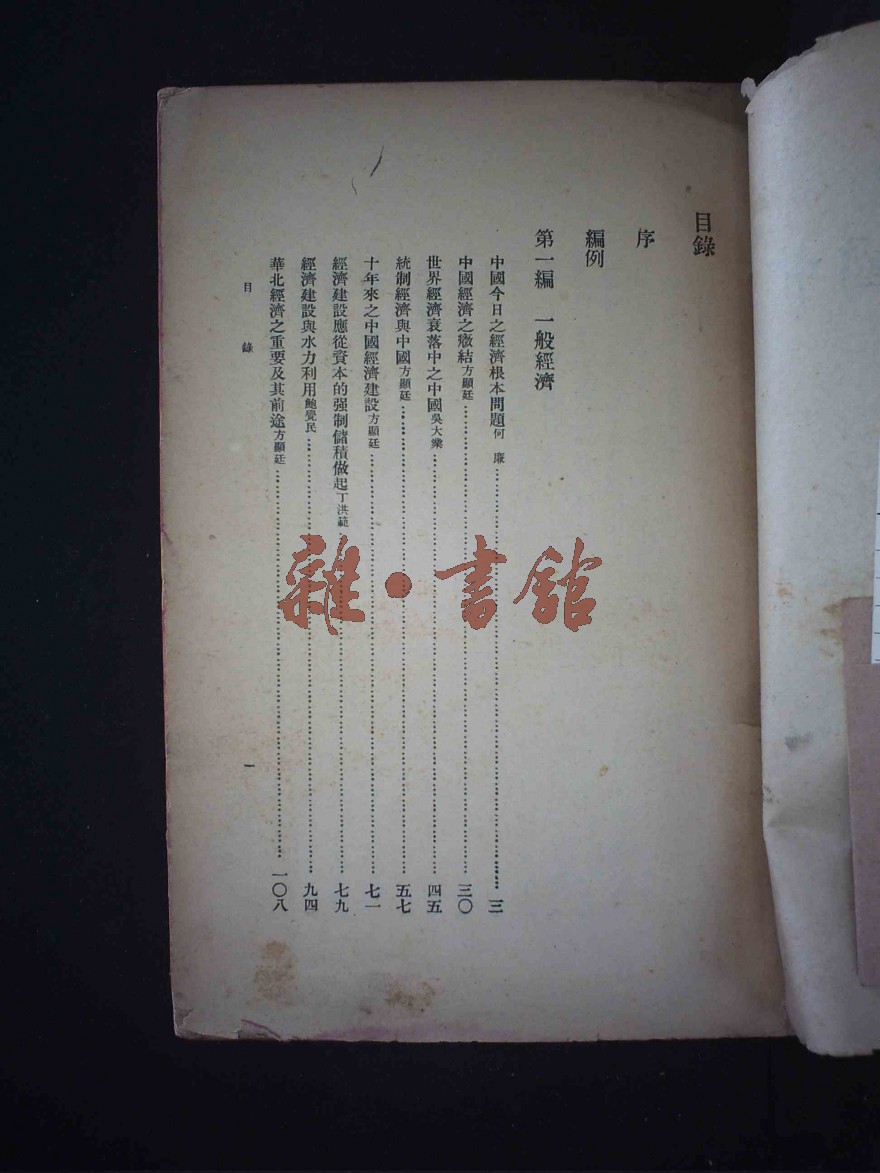 目錄
序
編例
第一編　一般經濟
中國今日之經濟根本問題何　廉……三
中國經濟之癥結方顯廷……三〇
世界經濟衰落中之中國吳大業……四五
統制經濟與中國方顯廷……五七
十年來之中國經濟建設方顯廷……七一
經濟建設應從資本的强制儲積做起丁洪範……七九
經濟建設與水力利用鮑覺民……九四
華北經濟之重要及其前途方顯廷……一〇八
目　錄
一
雜·書館